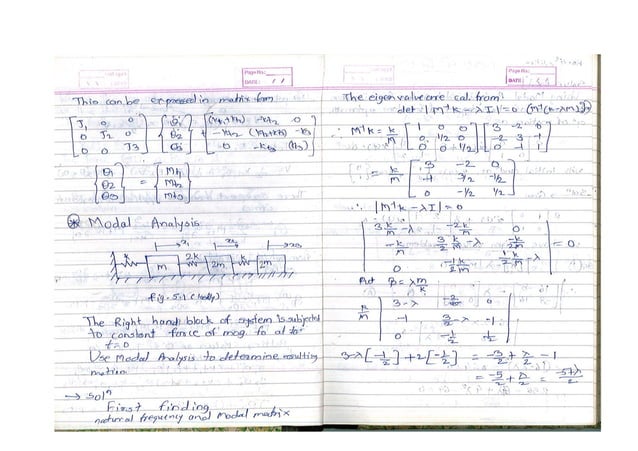 Page No:
DATE: / /
This can be expressed in matrix form
[J1 0 0; 0 J2 0; 0 0 J3] {θ1; θ2; θ3} + [(kt1+kt2) -kt2 0; -kt2 (kt2+kt3) -kt3; 0 -kt3 (kt3)]
{θ1; θ2; θ3} = {Mt1; Mt2; Mt3}
* Modal Analysis
k m 2k 2m k 2m
x1 x2 x3
fig. 5.1 (
The Right hand block of system is subjected
to constant force of mag. fo at to
t=0
Use Modal Analysis to determine resulting
motion
→ soln
First finding
natural frequency and modal matrix
Page No:
DATE:
The eigen value are cal. from
det |M⁻¹k - λI| = 0
∴ M⁻¹k = k/m [1 0 0; 0 1/2 0; 0 0 1/2] [3 -2 0; -2 3 -1; 0 -1 1]
= k/m [3 -2 0; -1 3/2 -1/2; 0 -1/2 1/2]
∴ |M⁻¹k - λI| = 0
|3k/m - λ -2k/m 0; -k/m 3/2 k/m - λ -k/2m; 0 -1/2 k/m 1/2 k/m - λ| = 0.
Put β = λ m/k
k/m |3-λ -2 0; -1 3/2-λ -1; 0 -1/2 1/2|
3-λ[-1/2] + 2[-1/2] = -3/2 + λ/2 - 1
= -5/2 + λ/2 = -5+λ/2